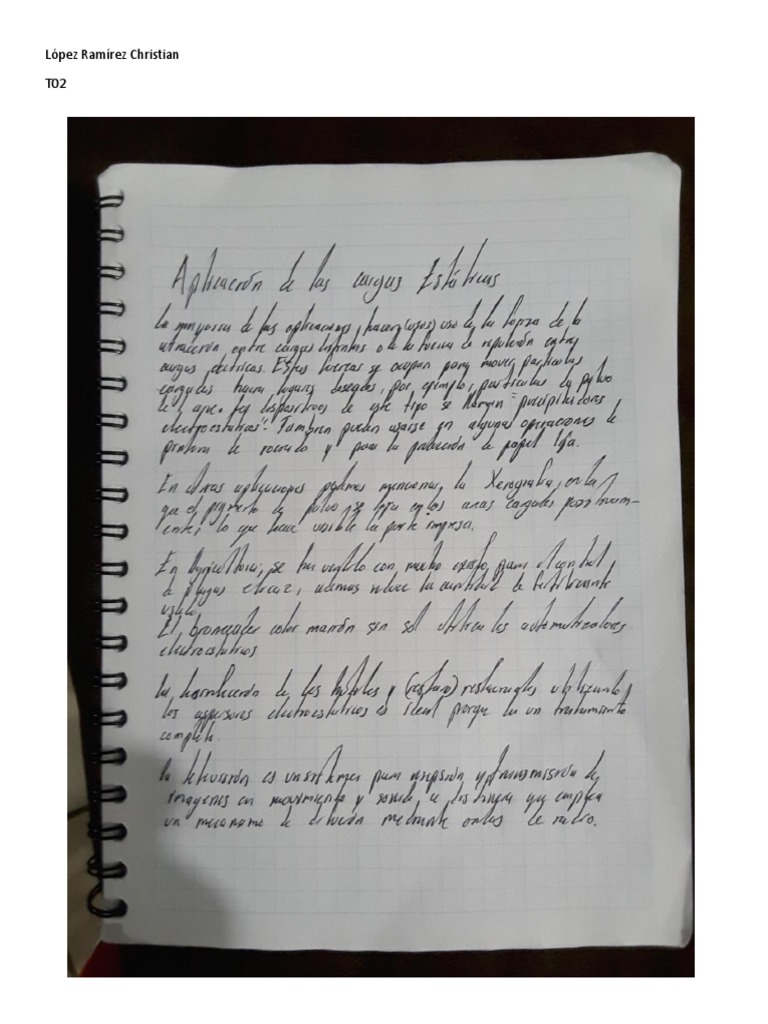 López Ramírez Christian
T02
Aplicación de las cargas Estáticas
La mayoria de las aplicaciones, hacen (usos) uso de la fuerza de la
atracción entre cargas distintas o de la fuerza de repulsión entre
cargas electricas. Estas fuerzas se ocupan para mover particulas
cargadas hacia lugares deseados, por ejemplo, particulas de polvo
de aire. los dispositivos de este tipo se llaman "precipitadores
electroestaticos". Tambien pueden usarse en algunas operaciones de
pintura de rociado y para la producción de papel lija.
En otras aplicaciones podemos mencionar, la Xerografia, en la
que el pigmento de polvo se fija en las areas cargadas positivam-
ente, lo que hace visible la parte impresa.
En Agricultura, se ha usado con mucho exito para el control
de plagas eficaz, ademas reduce la cantidad de fertilizante
usado
El bronceador color marrón sin sol utiliza los automatizadores
electroestaticos
la de los hoteles y restaurantes utilizando
los aspersores electroestaticos es ideal porque da un tratamiento
completo.
la television es un sistema para recepsión y transmisión de
imagenes en movimiento y sonido, a distancia que emplea
un mecanismo de difusión mediante ondas de radio.